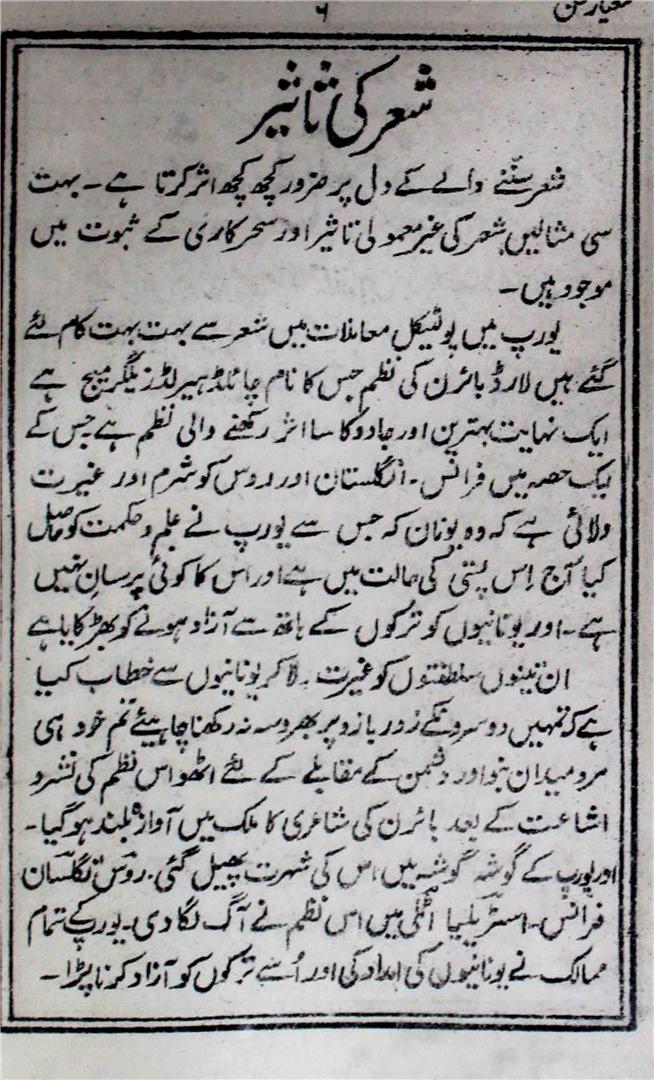 ۶
معیار سخن
شعر کی تاثیر
شعر سننے والے کے دل پر ضرور کچھ کچھ اثر کرتا ہے ۔ بہت
سی مثالیں شعر کی غیر معمولی تاثیر اور سحر کاری کے ثبوت میں
موجود ہیں ۔
یورپ میں پولٹیکل معاملات میں شعر سے بہت بہت کام لئے
گئے ہیں لارڈ بائرن کی نظم جس کا نام چائلڈ ہیرلڈز پلگریمیج ہے
ایک نہایت بہترین اور جادو کا سا اثر رکھنے والی نظم ہے جس کے
ایک حصہ میں فرانس ۔ انگلستان اور روس کو شرم اور غیرت
دلائی ہے کہ وہ یونان کہ جس سے یورپ نے علم و حکمت کو حاصل
کیا آج اس پستی کی حالت میں ہے اور اس کا کوئی پرسان نہیں
ہے ۔ اور یونانیوں کو ترکوں کے ہاتھ سے آزاد ہونے کو بھڑکایا ہے
ان تینوں سلطنتوں کو غیرت دلا کر یونانیوں سے خطاب کیا
ہے کہ تمہیں دوسروں کے زور بازو پر بھروسہ نہ رکھنا چاہیئے تم خود ہی
مرد میدان بنو اور دشمن کے مقابلے کے لئے اٹھو اس نظم کی نشر و
اشاعت کے بعد بائرن کی شاعری کا ملک میں آوازہ بلند ہو گیا ۔
اور یورپ کے گوشہ گوشہ میں اس کی شہرت پھیل گئی ۔ روس انگلستان
فرانس ۔ اسٹریلیا اٹلی میں اس نظم نے آگ لگا دی ۔ یورپ کے تمام
ممالک نے یونانیوں کی امداد کی اور اُسے ترکوں کو آزاد کرنا پڑا ۔